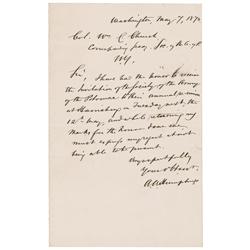 Washington, May 7, 1874
Col. Wm C. Church
Corresponding Secy. Soc. of the A. of the P.
N.Y.
Sir, I have had the honor to receive
the invitation of the Society of the Army
of the Potomac to their annual reunion
at Harrisburg on Tuesday next, the
12th May, and while returning my
thanks for the honor done me,
must express my regret at not
being able to be present.
Very respectfully
Your ob Servt
A A Humphreys